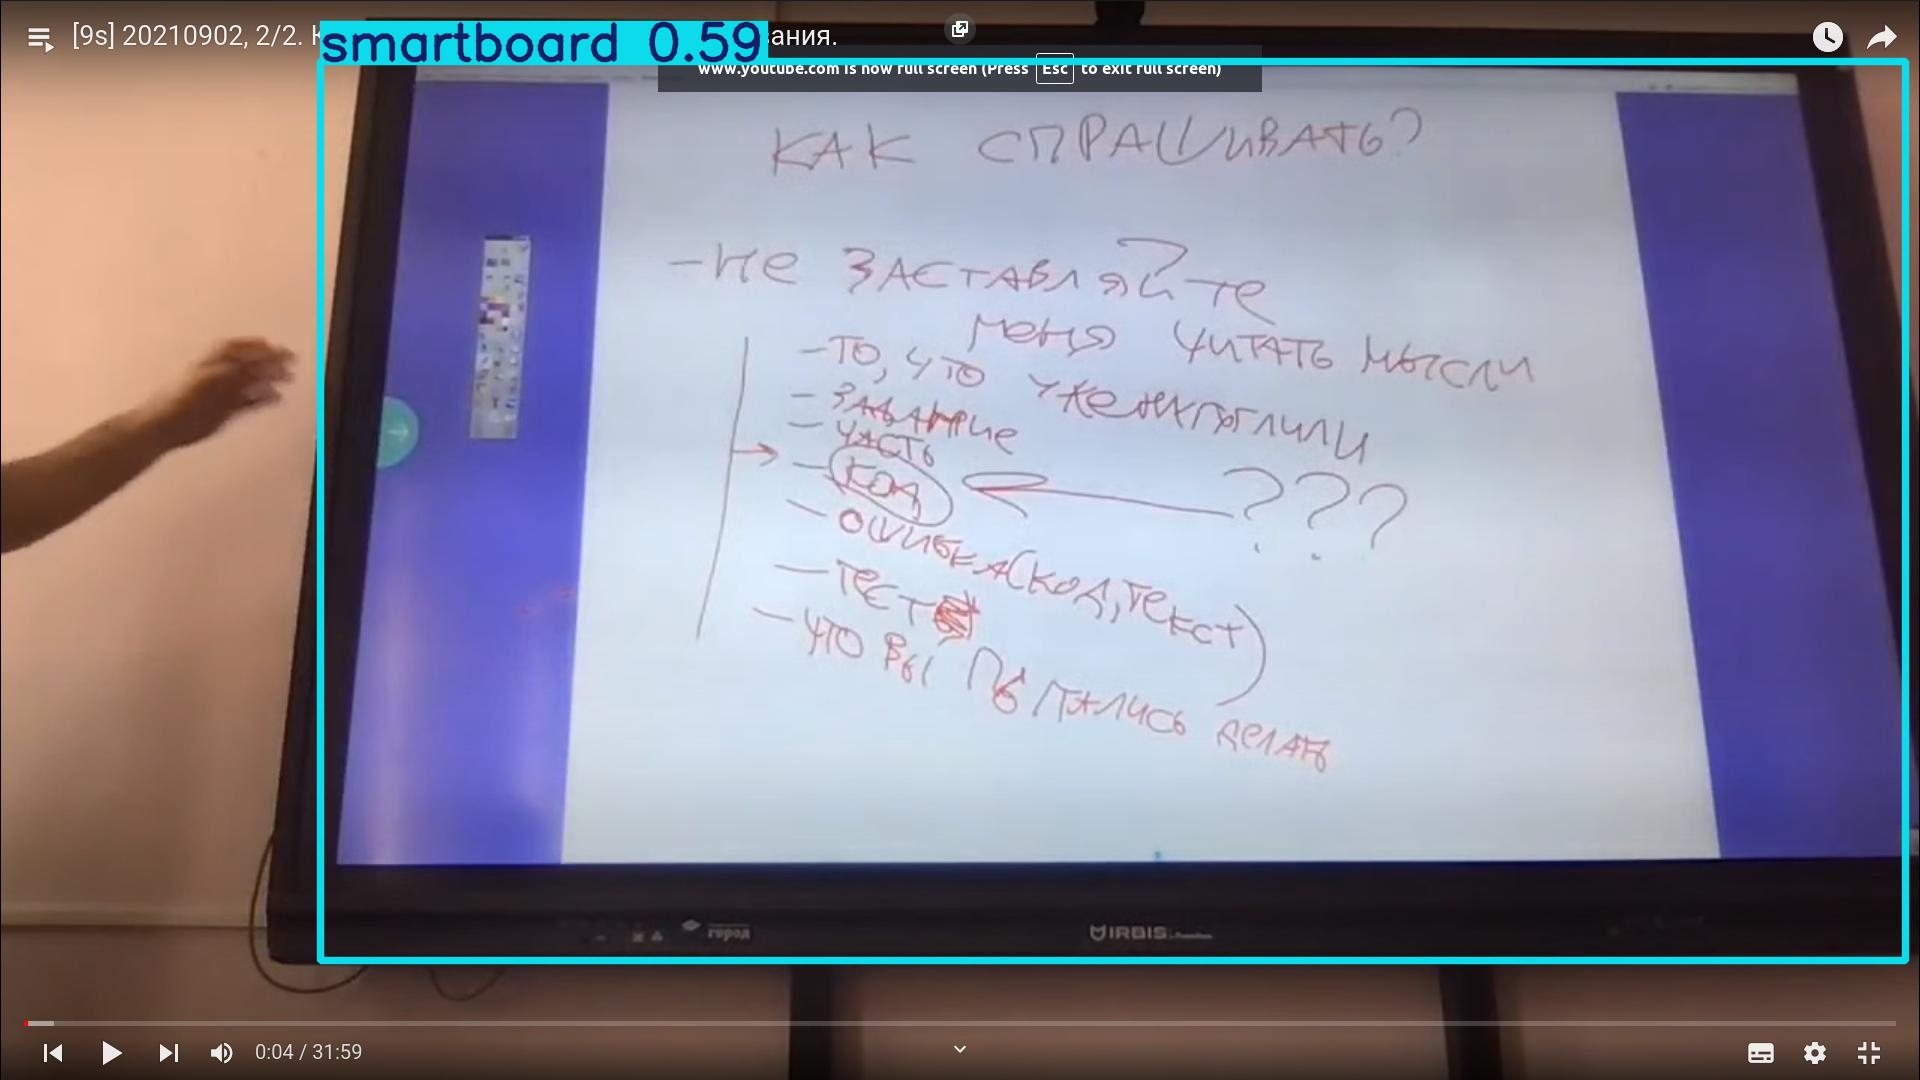 [9s] 20210902, 2/2. К
smartboard 0.59
ания.
www.youtube.com is now full screen (Press Esc to exit full screen)
КАК СПРАШИВАТЬ?
- НЕ ЗАСТАВЛЯЙТЕ
МЕНЯ ЧИТАТЬ МЫСЛИ
- ТО, ЧТО УЖЕ НАГУГЛИЛИ
- ЗАДАНИЕ
- ЧАСТЬ
- КОД ???
- ОШИБКА (КОД, ТЕКСТ)
- ТЕСТ
- ЧТО ВЫ ПЫТАЛИСЬ ДЕЛАТЬ
город
IRBIS
0:04 / 31:59